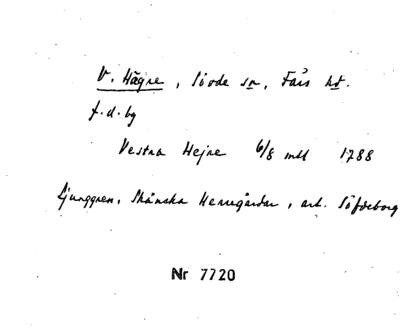 V. Hägre, Sövde sn, Färs hd.
f.d. by
Vestra Hejre 6/8 mtl 1788
Ljunggren, Skånska Herregårdar, art. Söfdeborg
Nr 7720